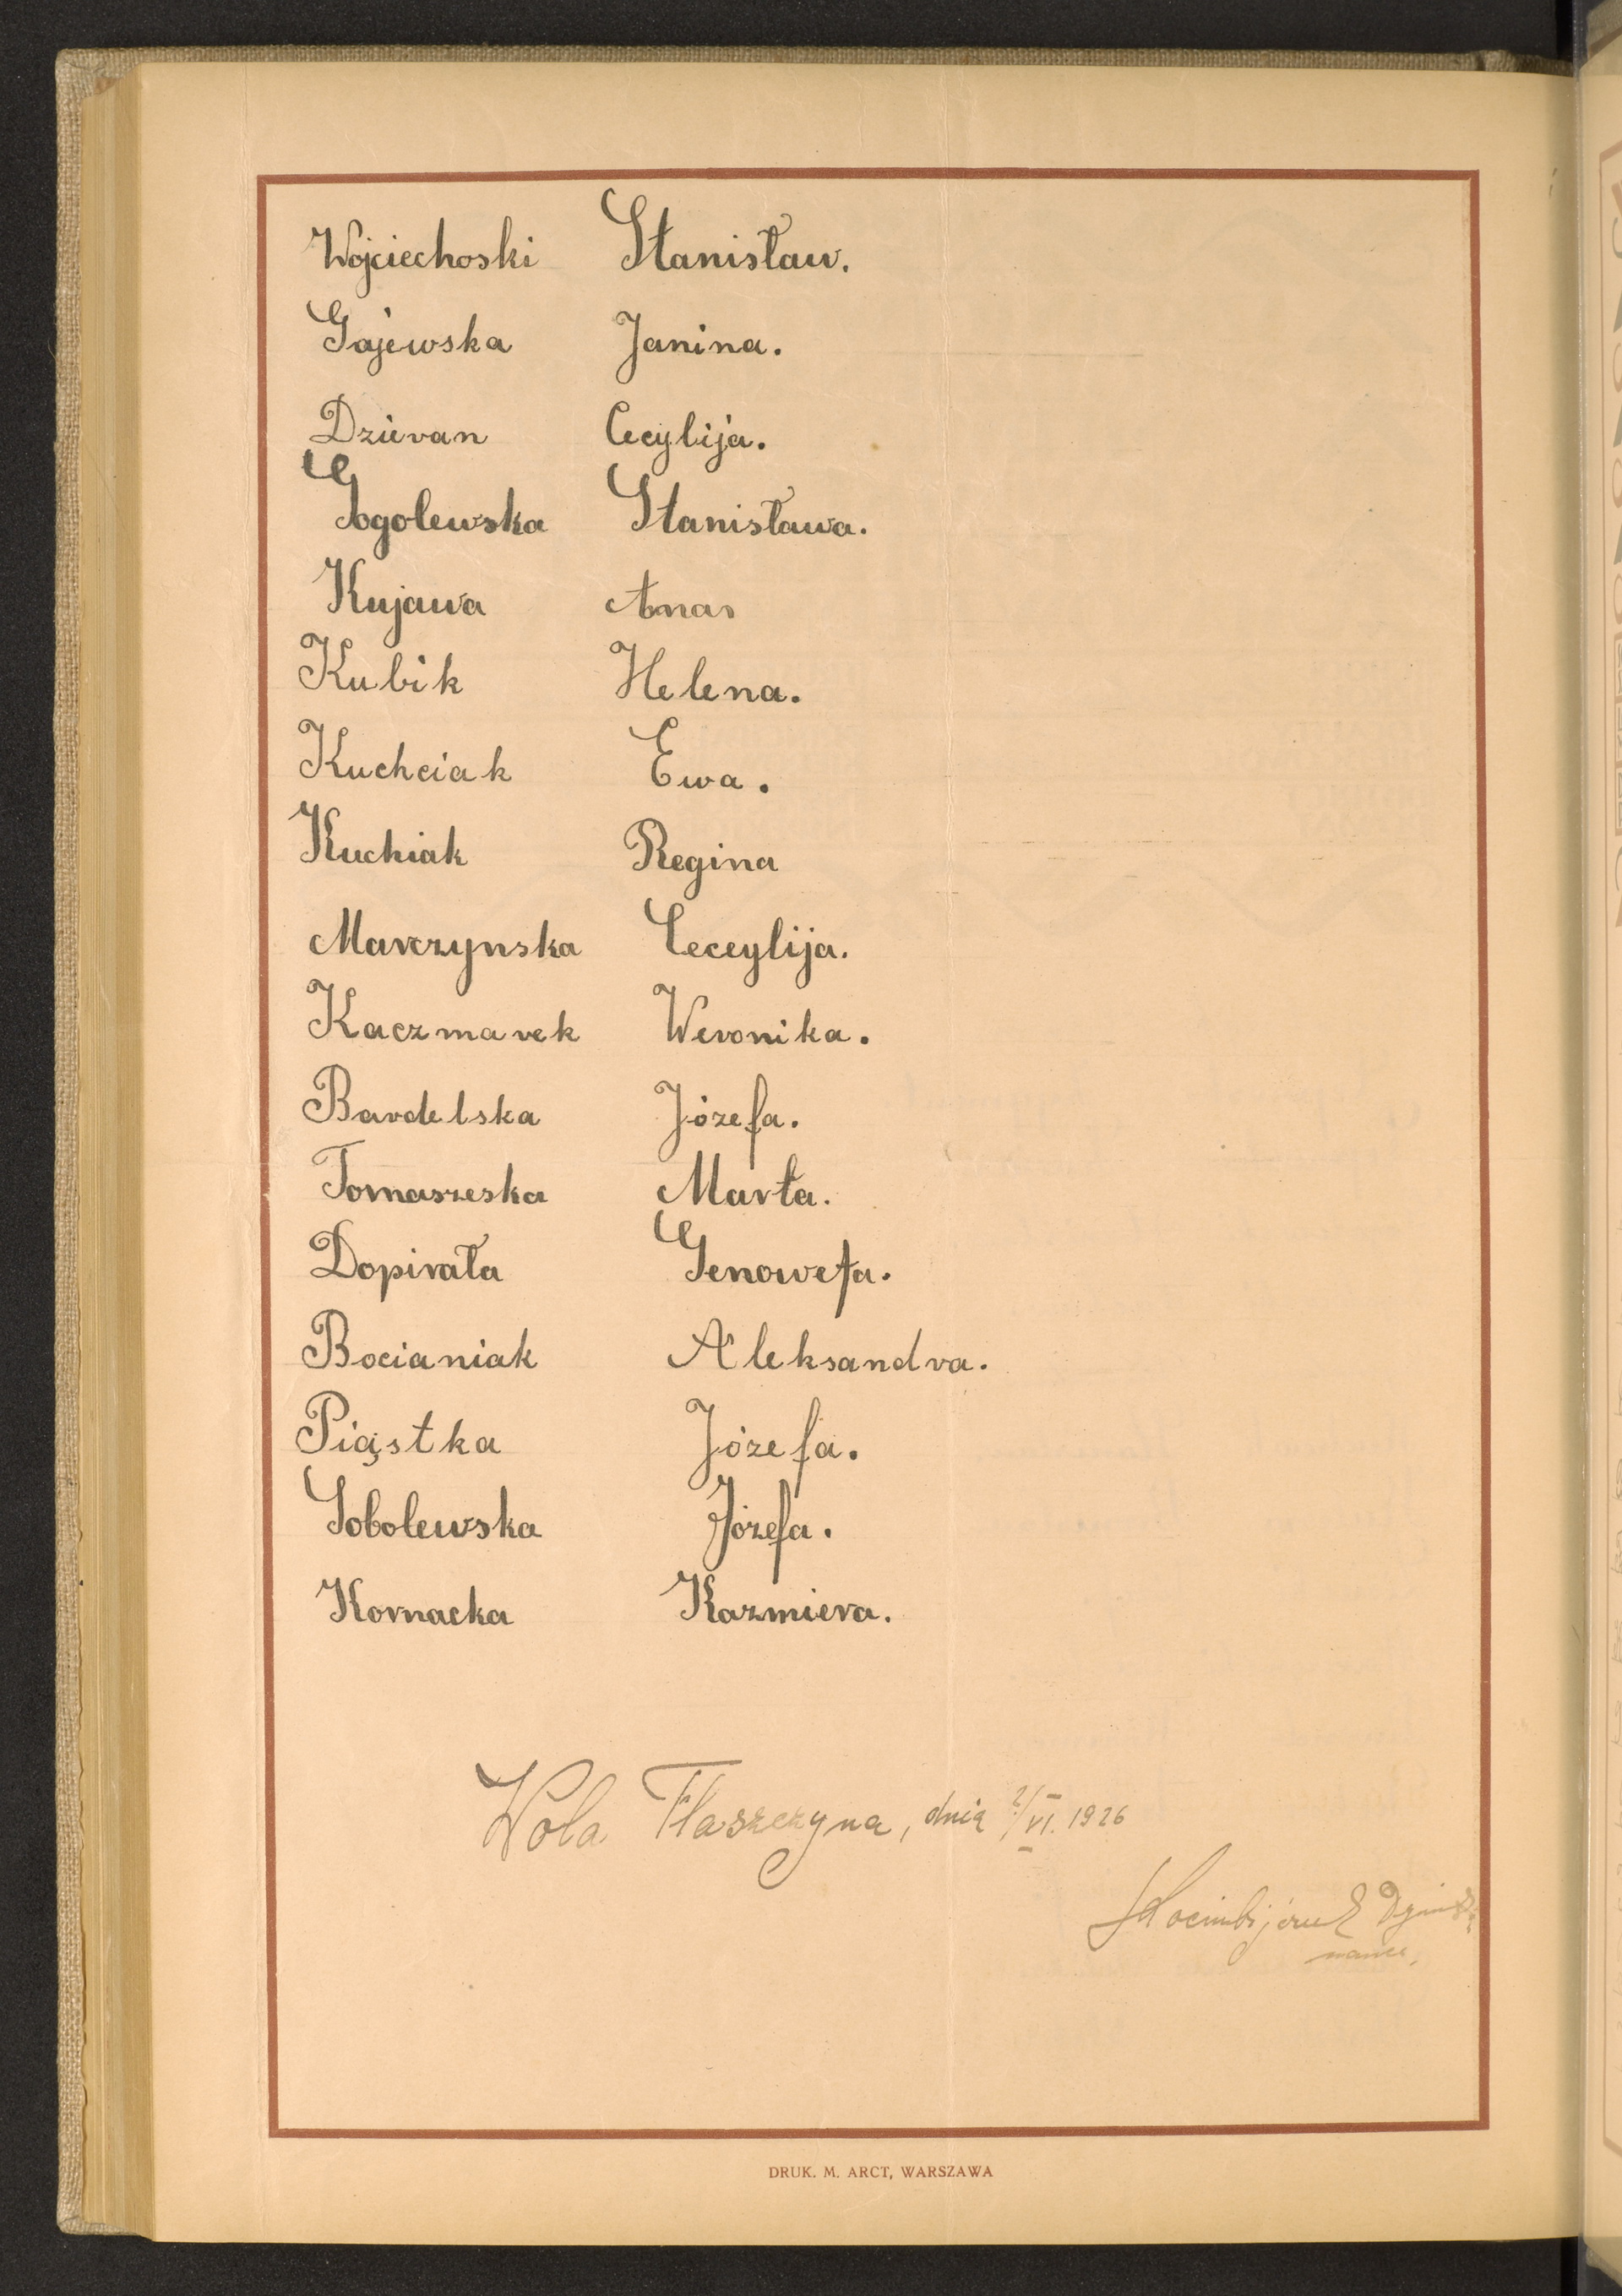 Wojciechoski Stanisław.
Gajewska Janina.
Dziewan Cecylija.
Gogolewska Stanisława.
Kujawa Anas
Kubik Helena.
Kuchciak Ewa.
Kuchiak Regina
Marczynska Leceylija.
Kaczmarek Weronika.
Bardelska Józefa.
Tomaszeska Marta.
Dopirała Genowefa.
Bocianiak Aleksandra.
Piąstka Józefa.
Sobolewska Józefa.
Kornacka Kazmiera.
Wola Flaszczyna, dnia 2/VI. 1926
DRUK. M. ARCT, WARSZAWA